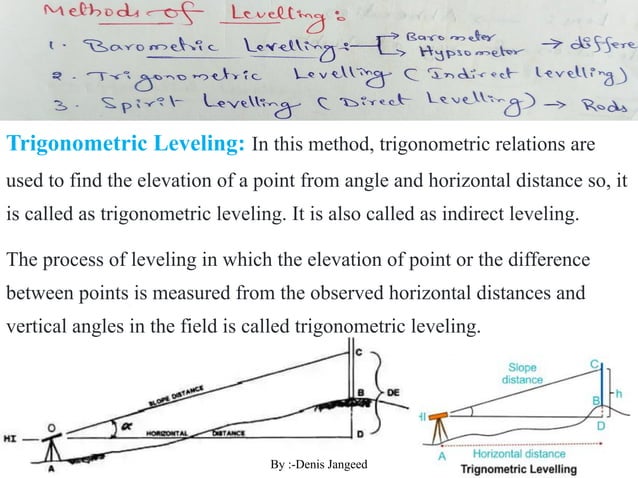 Methods of Levelling:
1. Barometric Levelling:- Barometer
Hypsometer → differe
2. Trigonometric Levelling (Indirect levelling)
3. Spirit Levelling (Direct Levelling) → Rods
Trigonometric Leveling: In this method, trigonometric relations are
used to find the elevation of a point from angle and horizontal distance so, it
is called as trigonometric leveling. It is also called as indirect leveling.
The process of leveling in which the elevation of point or the difference
between points is measured from the observed horizontal distances and
vertical angles in the field is called trigonometric leveling.
C
SLOPE DISTANCE
B
DE
O
α
HI
HORIZONTAL DISTANCE
D
A
Slope
distance
C
B
h
HI
D
A
Horizontal distance
Trignometric Levelling
By :-Denis Jangeed